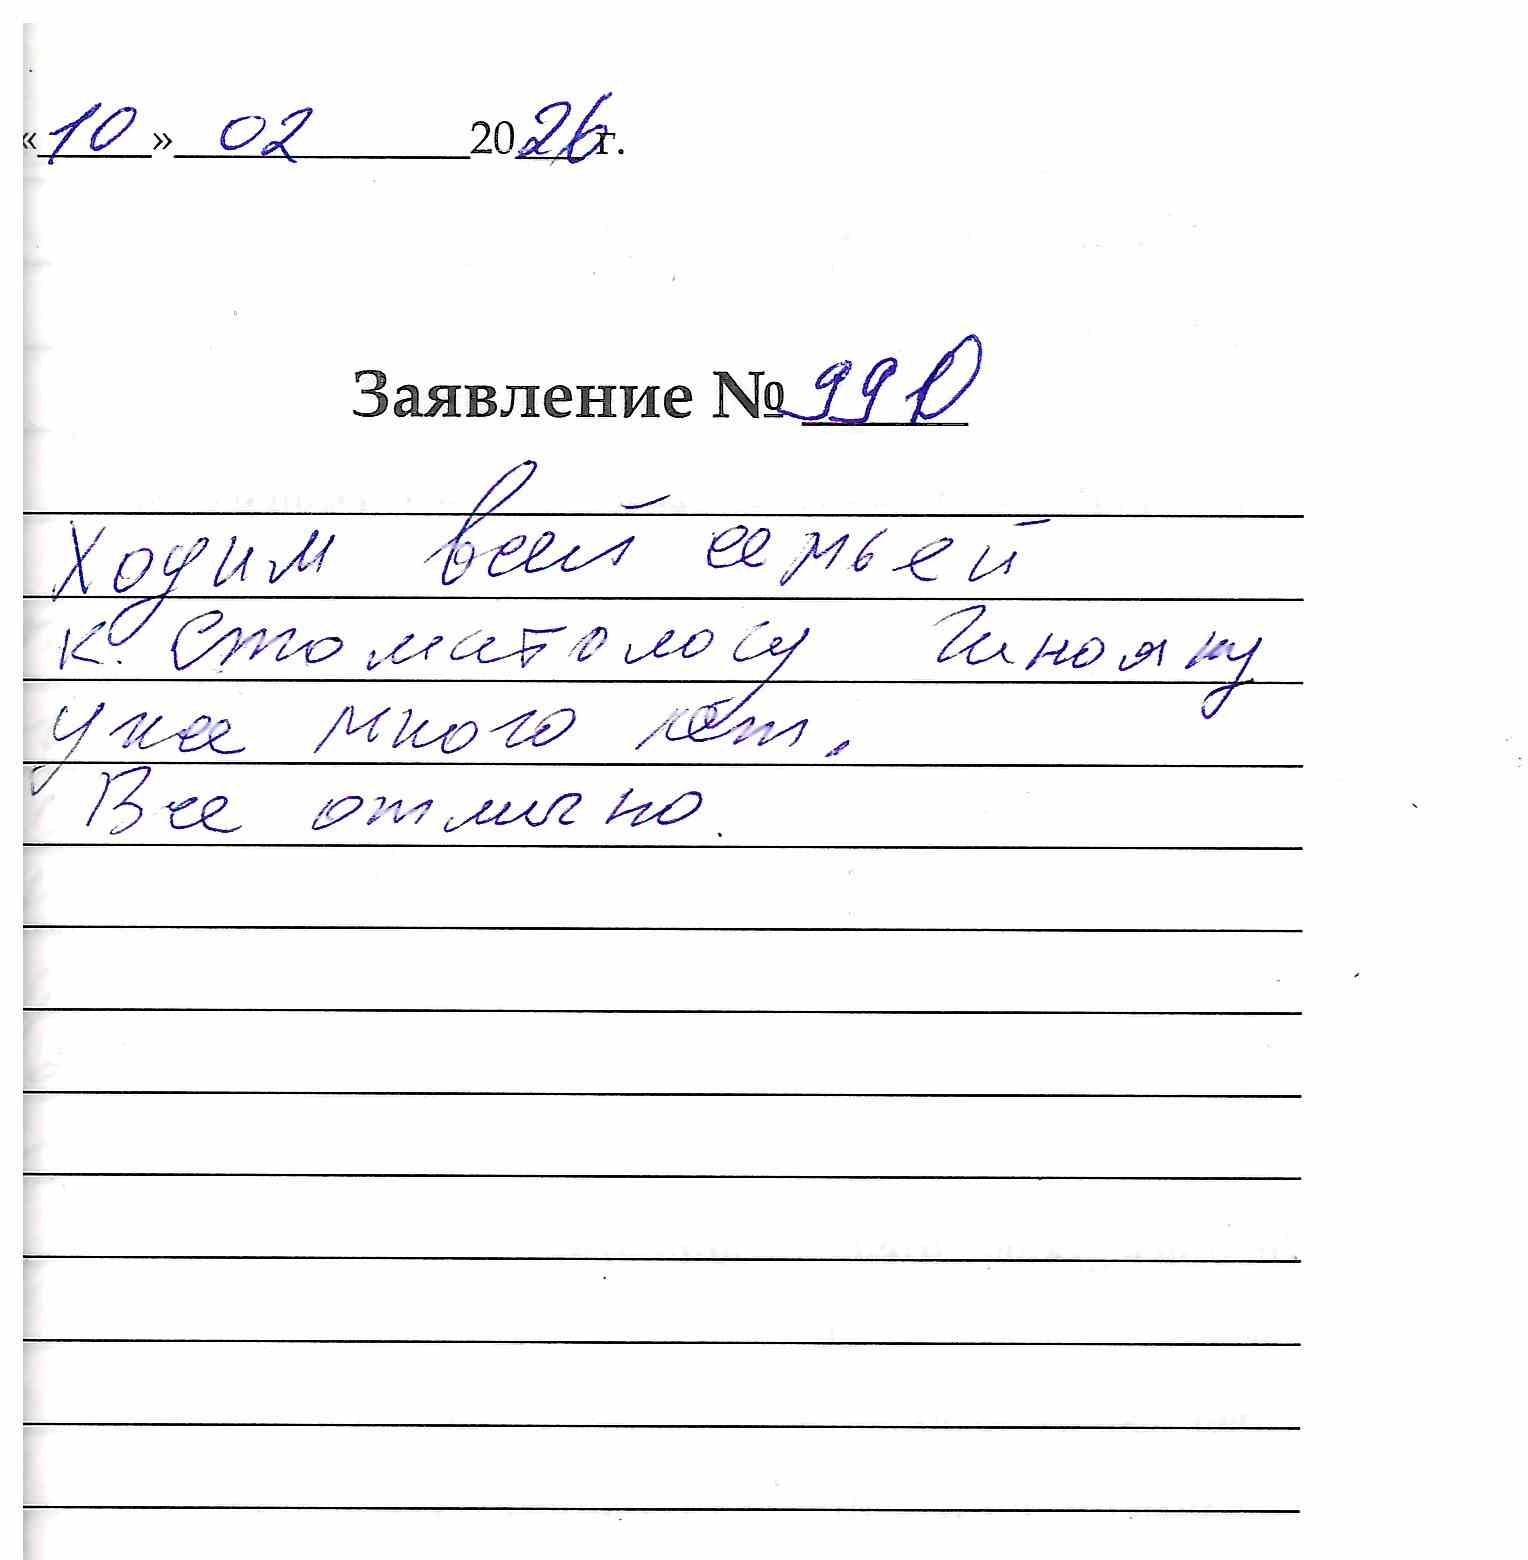 «10» 02 2026 г.
Заявление № 990
Ходим всей семьей
к стоматологу
уже много лет.
Все отлично.